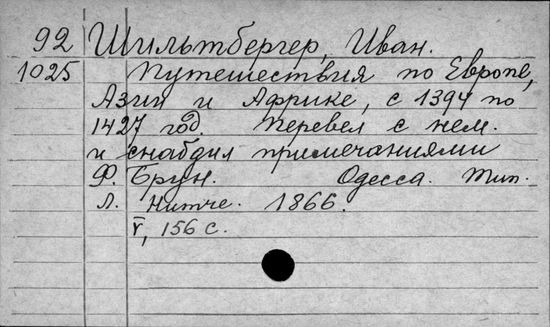 92 Шильтбергер, Иван.
1025 Путешествия по Европе,
Азии и Африке, с 1394 по
1427 год. Перевел с нем.
и снабдил примечаниями
Ф. Брун. Одесса. Тип.
Л. Нитче. 1866.
V, 156 с.